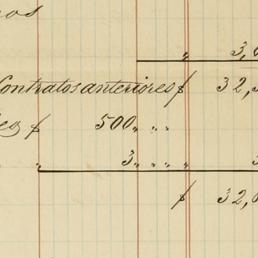 os
" 3,
Contratos anteriores $ 32,
$ 500 " "
" 3 " " "
$ 32,0